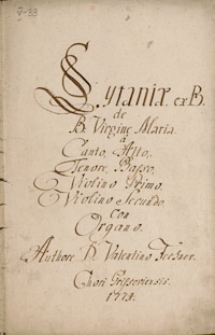 Lytaniæ ex B.
de
B. Virgine Maria.
a
Canto, Alto,
Tenore, Basso,
Violino Primo,
Violino Secundo,
con
Organo.
Authore D. Valentino
Chori
1773.